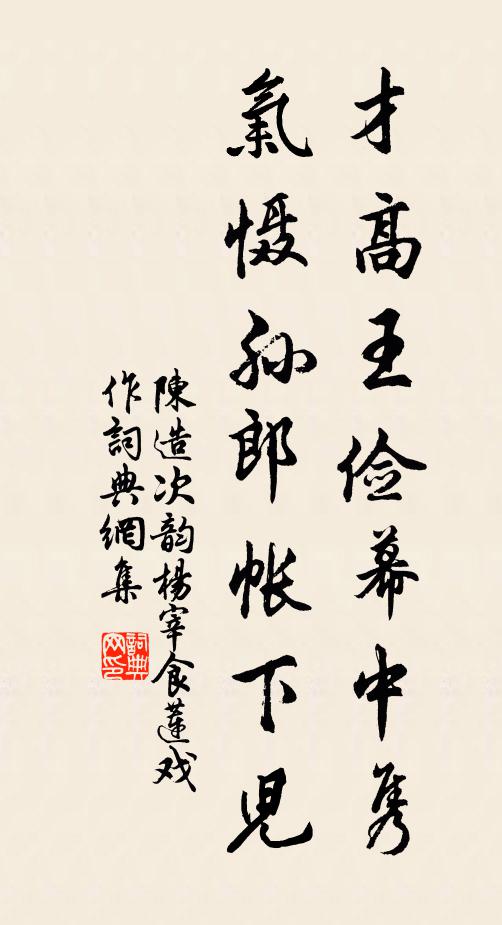 才高王俭幕中隽
氣慑孙郎帐下児
陳造次韵楊宰食蓮戏
作詞典網集
詞典网印